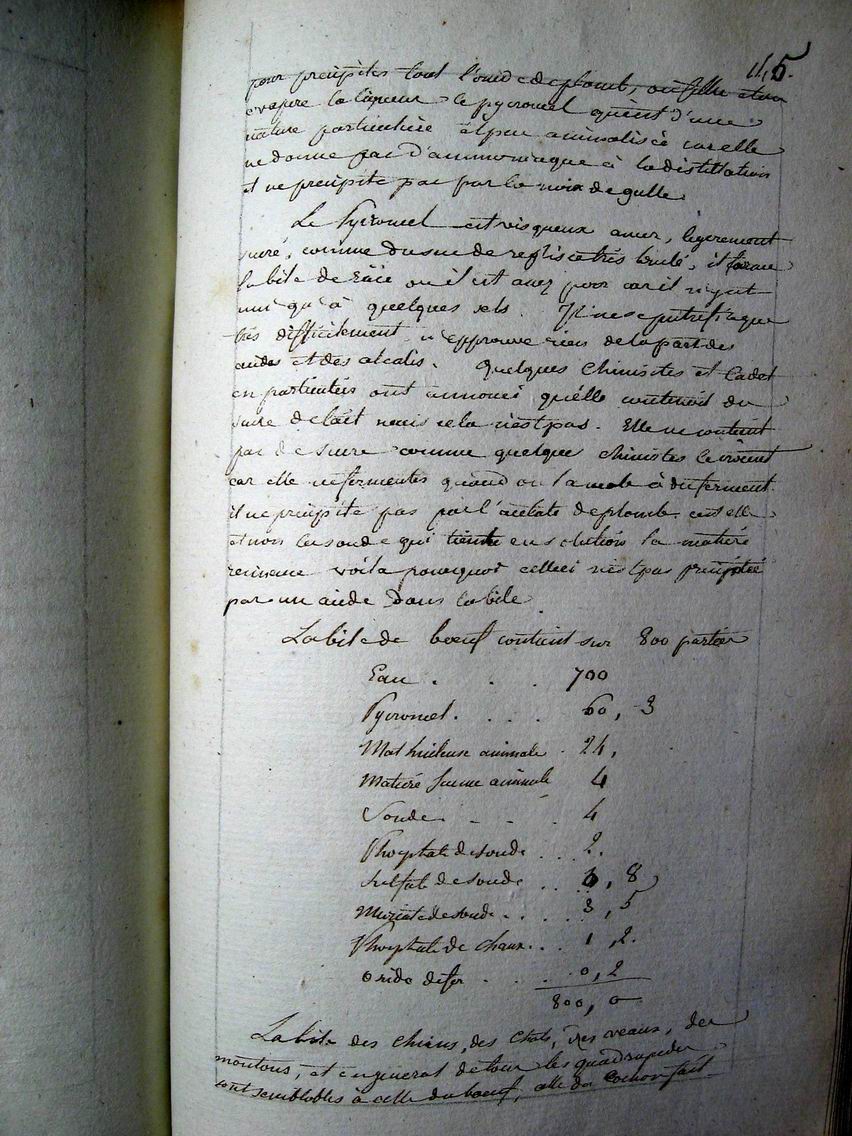 115.
pour precipiter tout l'oxide de plomb, on filtre et on
evapore la liqueur le pycromel qui est d'une
nature particuliere et peu animalisée car elle
ne donne pas d'ammoniaque à la distillation
et ne precipite pas par la noix de galle.
Le Pycromel est visqueux amer, legerement
sucré, comme du suc de reglisse très brulé, il forme
la bile de où il est assez pour car il n'y est
uni qu'à quelques sels. Il ne se putrefie que
très difficilement n'epprouve rien de la part des
acides et des alcalis. Quelques Chimistes et Cadet
en particuliers ont annoncé qu'elle contenoit du
sucre de lait mais cela n'est pas. Elle ne contient
pas de sucre comme quelques chimistes le croient
car elle ne fermentes quand on la mele à du ferment.
il ne precipite pas par l'acetate de plomb c'est elle
et non la soude qui tient en solution la matiere
resineuse voila pourquoi celleci n'est pas precipitée
par un acide dans la bile.
La bile de boeuf contient sur 800 parties
Eau . . . 700
Pycromel . . . 60, 3
Mat huileuse animale . 24,
Matiere jaune animale 4
Soude . . . 4
Phosphate de soude . . 2.
Sulfate de soude . . 0, 8
Muriate de soude . . 3, 5
Phosphate de chaux . . 1, 2.
Oxide de fer . . . 0, 2
800, 0
La bile des chiens, des chats, des veaux, des
moutons, et en general de tous les quadrupedes
sont semblables à celle du boeuf, celle du cochon fait